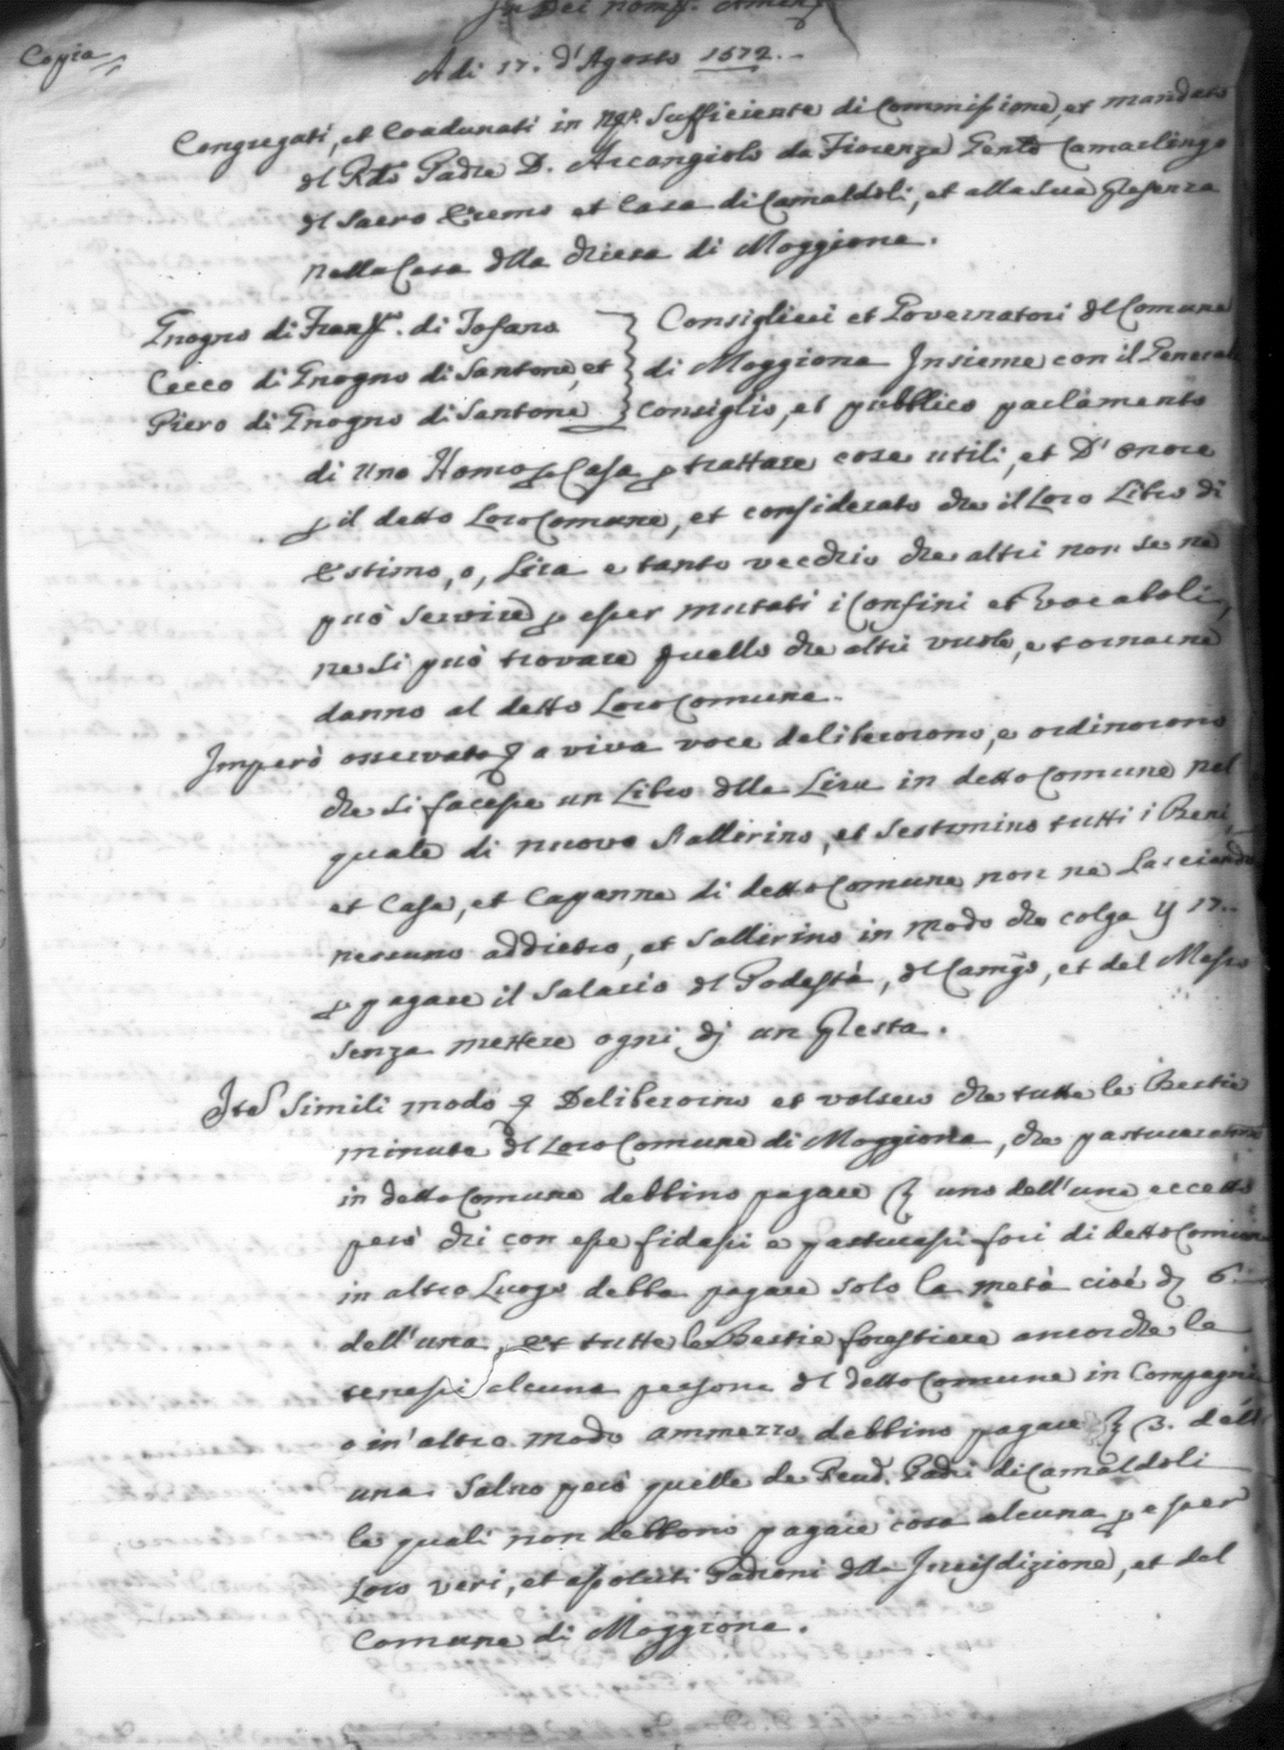 In Dei nom.e Amen
Copia
Adi 17. d'Agosto 1572.
Congregati, et Coadunati in Sufficiente di Commissione, et mandato
del R.do Padre D. Arcangiolo da Fiorenza Camarlingo
del Sacro Eremo et Casa di Camaldoli, et alla sua presenza
nella Casa della Chiesa di Moggiona.
Gnogno di Fran.co di Tofano Consiglieri et Governatori del Comune
Cecco di Gnogno di Santone, et di Moggiona Insieme con il Generale
Piero di Gnogno di Santone Consiglio, et pubblico parlamento
di Uno Homo p Casa p trattare cose utili, et D'onore
p il detto Loro Comune, et considerato che il Loro Libro di
Estimo, o, Lira e tanto vecchio che altri non se ne
può servire p esser mutati i Confini et vocaboli,
ne si può trovare quello che altri vuole, e tornarne
danno al detto Loro Comune.
Imperò osservato a viva voce deliberorono, e ordinorono
che si facesse un Libro della Lira in detto Comune nel
quale di nuovo s'allirino, et s'estimino tutti i Beni,
et Case, et Capanne di detto Comune non ne Lasciando
nessuno addietro, et s'allirino in modo che colga 17..
p pagare il Salario del Podestà, del Cam.go, et del Messo
senza mettere ogni dì un presta.
It. Simili modo Deliberorno et volsero che tutte le Bestie
minute del Loro Comune di Moggiona, che pastureranno
in detto Comune debbino pagare uno dell'una eccetto
però chi con esse fidassi e pasturassi fori di detto Comune
in altro Luogo debba pagare solo la metà cioè d 6.
dell'una, et tutte le Bestie forestiere ancorche le
tenessi alcuna persona del detto Comune in Compagnia
o in altro modo ammezzo debbino pagare 3. dell'
una. Salvo però quelle de Reud. Padri di Camaldoli
le quali non debbono pagare cosa alcuna p esser
Loro veri, et assoluti Padroni della Iurisdizione, et del
Comune di Moggiona.